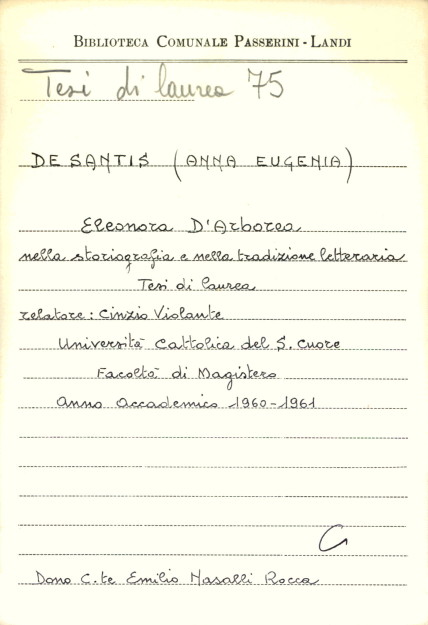 BIBLIOTECA COMUNALE PASSERINI - LANDI
Tesi di laurea 75
DE SANTIS (ANNA EUGENIA)
Eleonora D'Arborea
nella storiografia e nella tradizione letteraria
Tesi di laurea
relatore: Cinzio Violante
Università Cattolica del S. Cuore
Facoltà di Magistero
Anno Accademico 1960-1961
Dono C.te Emilio Nasalli Rocca